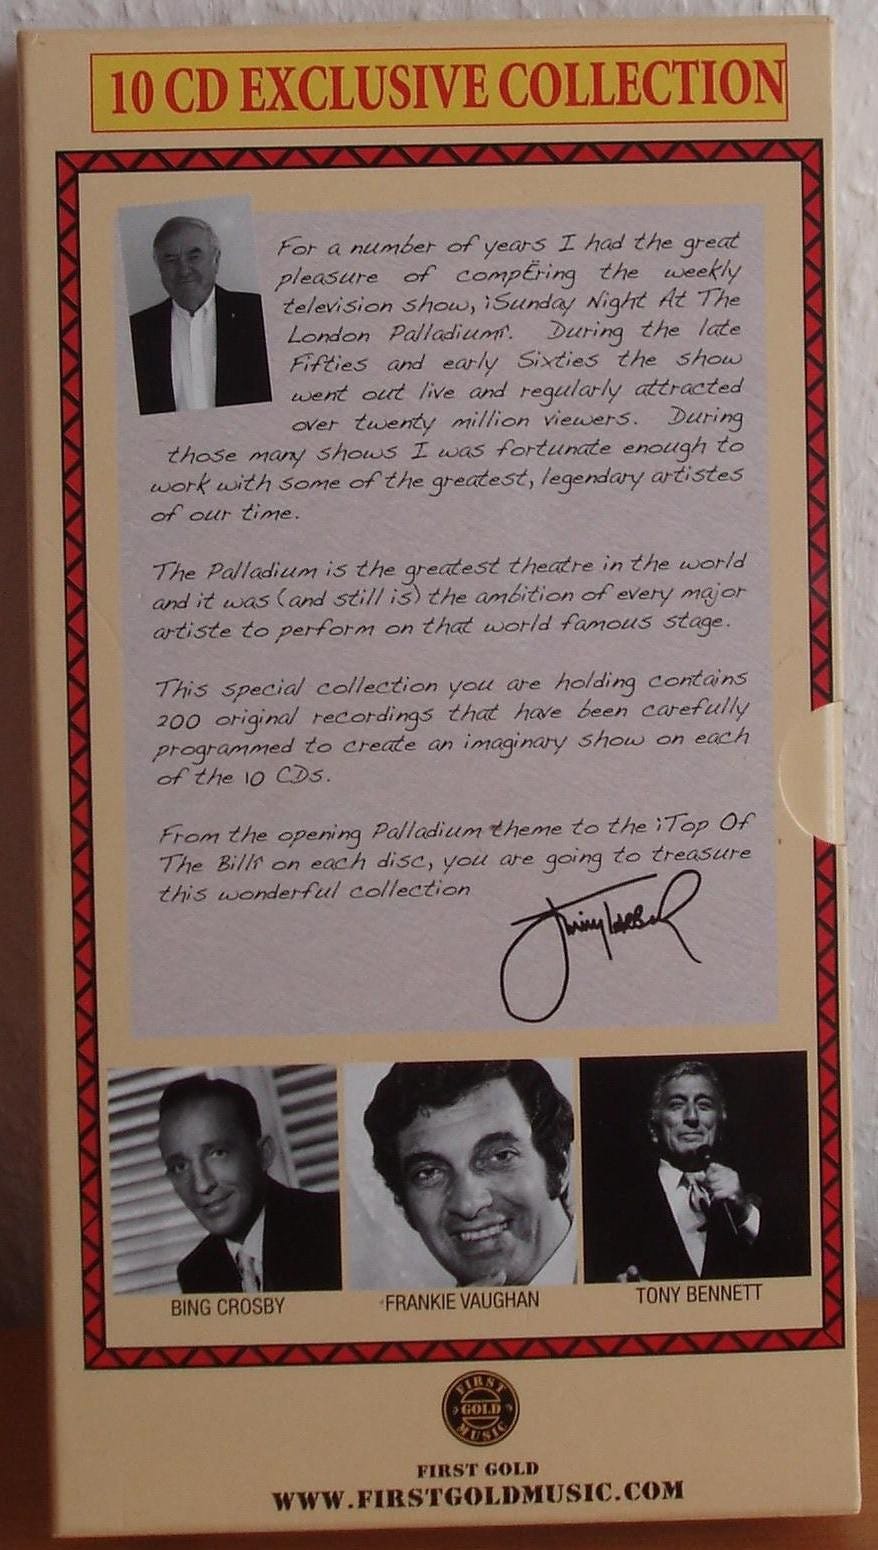 10 CD EXCLUSIVE COLLECTION
For a number of years I had the great
pleasure of compËring the weekly
television show, ìSunday Night At The
London Palladiumî. During the late
Fifties and early Sixties the show
went out live and regularly attracted
over twenty million viewers. During
those many shows I was fortunate enough to
work with some of the greatest, legendary artistes
of our time.
The Palladium is the greatest theatre in the world
and it was (and still is) the ambition of every major
artiste to perform on that world famous stage.
This special collection you are holding contains
200 original recordings that have been carefully
programmed to create an imaginary show on each
of the 10 CDs.
From the opening Palladium theme to the ìTop Of
The Billî on each disc, you are going to treasure
this wonderful collection
Jimmy Tarbuck
BING CROSBY
FRANKIE VAUGHAN
TONY BENNETT
FIRST
GOLD
MUSIC
FIRST GOLD
WWW.FIRSTGOLDMUSIC.COM